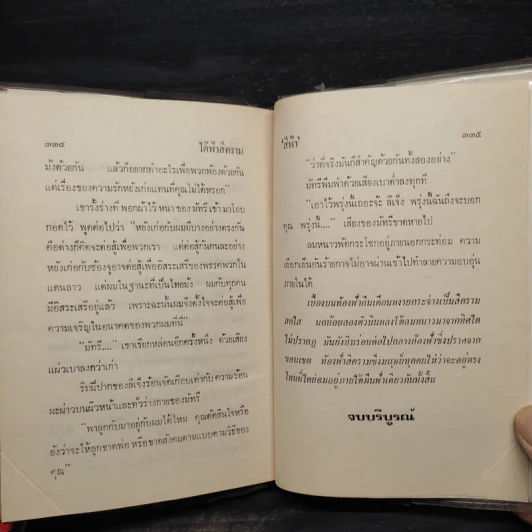 ๓๓๔
ใต้ฟ้าสีคราม
มังด้วยกัน แล้วก็อยากทำอะไรเพื่อพวกพ้องด้วยกัน
แต่เรื่องของความรักหยังเก่อแทนที่คุณไม่ได้หรอก"
เขารั้งร่างที่พอกผ้าไว้หนาของมัทรีเข้ามาโอบ
กอดไว้ พูดต่อไปว่า "หยังเก่อกับผมมีบางอย่างตรงกัน
คือต่างก็คิดจะต่อสู้เพื่อพวกเรา แต่ต่อสู้กันคนละอย่าง
หยังเก่อกับซ้องจูอาจต่อสู้เพื่ออิสระเสรีของพรรคพวกใน
แดนลาว แต่ผมในฐานะที่เป็นไทยมัง ผมกับทุกคน
มีอิสระเสรีอยู่แล้ว เพราะฉะนั้นผมจึงตั้งใจจะต่อสู้เพื่อ
ความเจริญในอนาคตของพวกผมที่นี่"
"มัทรี...." เขาเรียกหล่อนอีกครั้งหนึ่ง ด้วยเสียง
แผ่วเบาลงกว่าเก่า
ริมฝีปากของลีเจ็งร้อนจัดเกือบเท่ากับความร้อน
ผะผ่าวบนผิวหน้าและทั่วร่างกายของมัทรี
"พาลูกกับมาอยู่กับผมได้ไหม คุณตัดสินใจหรือ
ยังว่าจะให้ลูกขาดพ่อ หรือขาดสังคมตามแบบตามวิธีของ
คุณ"
'สีฟ้า'
๓๓๕
"ว่าที่จริงมันก็สำคัญด้วยกันทั้งสองอย่าง"
มัทรีพึมพำด้วยเสียงเบาต่ำลงทุกที
"เอาไว้พรุ่งนี้เถอะจ้ะ ลีเจ็ง พรุ่งนี้ฉันถึงจะบอก
คุณ พรุ่งนี้...." เสียงของมัทรีขาดหายไป
ลมหนาวพัดกระโชกอยู่ภายนอกกระท่อม ความ
เยือกเย็นอันร้ายกาจไม่อาจผ่านเข้าไปทำลายความอบอุ่น
ภายในได้
เบื้องบนท้องฟ้าคืนเดือนหงายกระจ่างเป็นสีคราม
สดใส นกน้อยสองตัวบินหลงโต้ลมหนาวมาจากทิศใด
ไม่ปรากฏ มันยังบินร่อนต่อไปกลางท้องฟ้าซึ่งปราศจาก
ขอบเขต ท้องฟ้าสีครามซึ่งมนุษย์ทุกคนไม่ว่าจะอยู่ตรง
ไหนที่ใดย่อมอยู่ภายใต้ผืนฟ้าเดียวกันทั้งสิ้น
จบบริบูรณ์